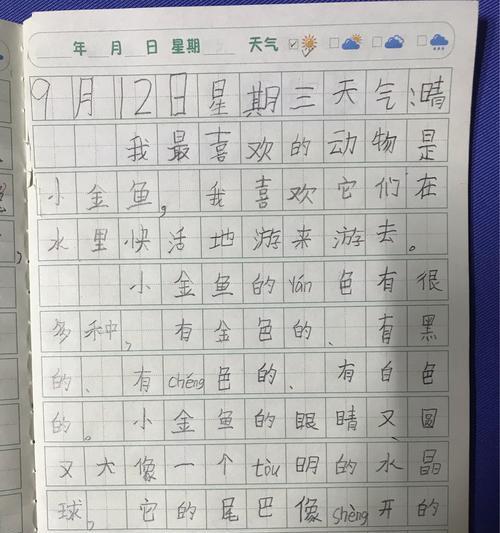 年 月 日 星期 天气
9月12日星期三天气晴
我最喜欢的动物是
小金鱼,我喜欢它们在
水里快活地游来游去。
小金鱼的yán色有很
多种,有金色的、有黑
的、有chéng色的、有白色
的。小金鱼的眼睛又圆
又大像一个tòu明的水晶
球,它的尾巴像shèng开的